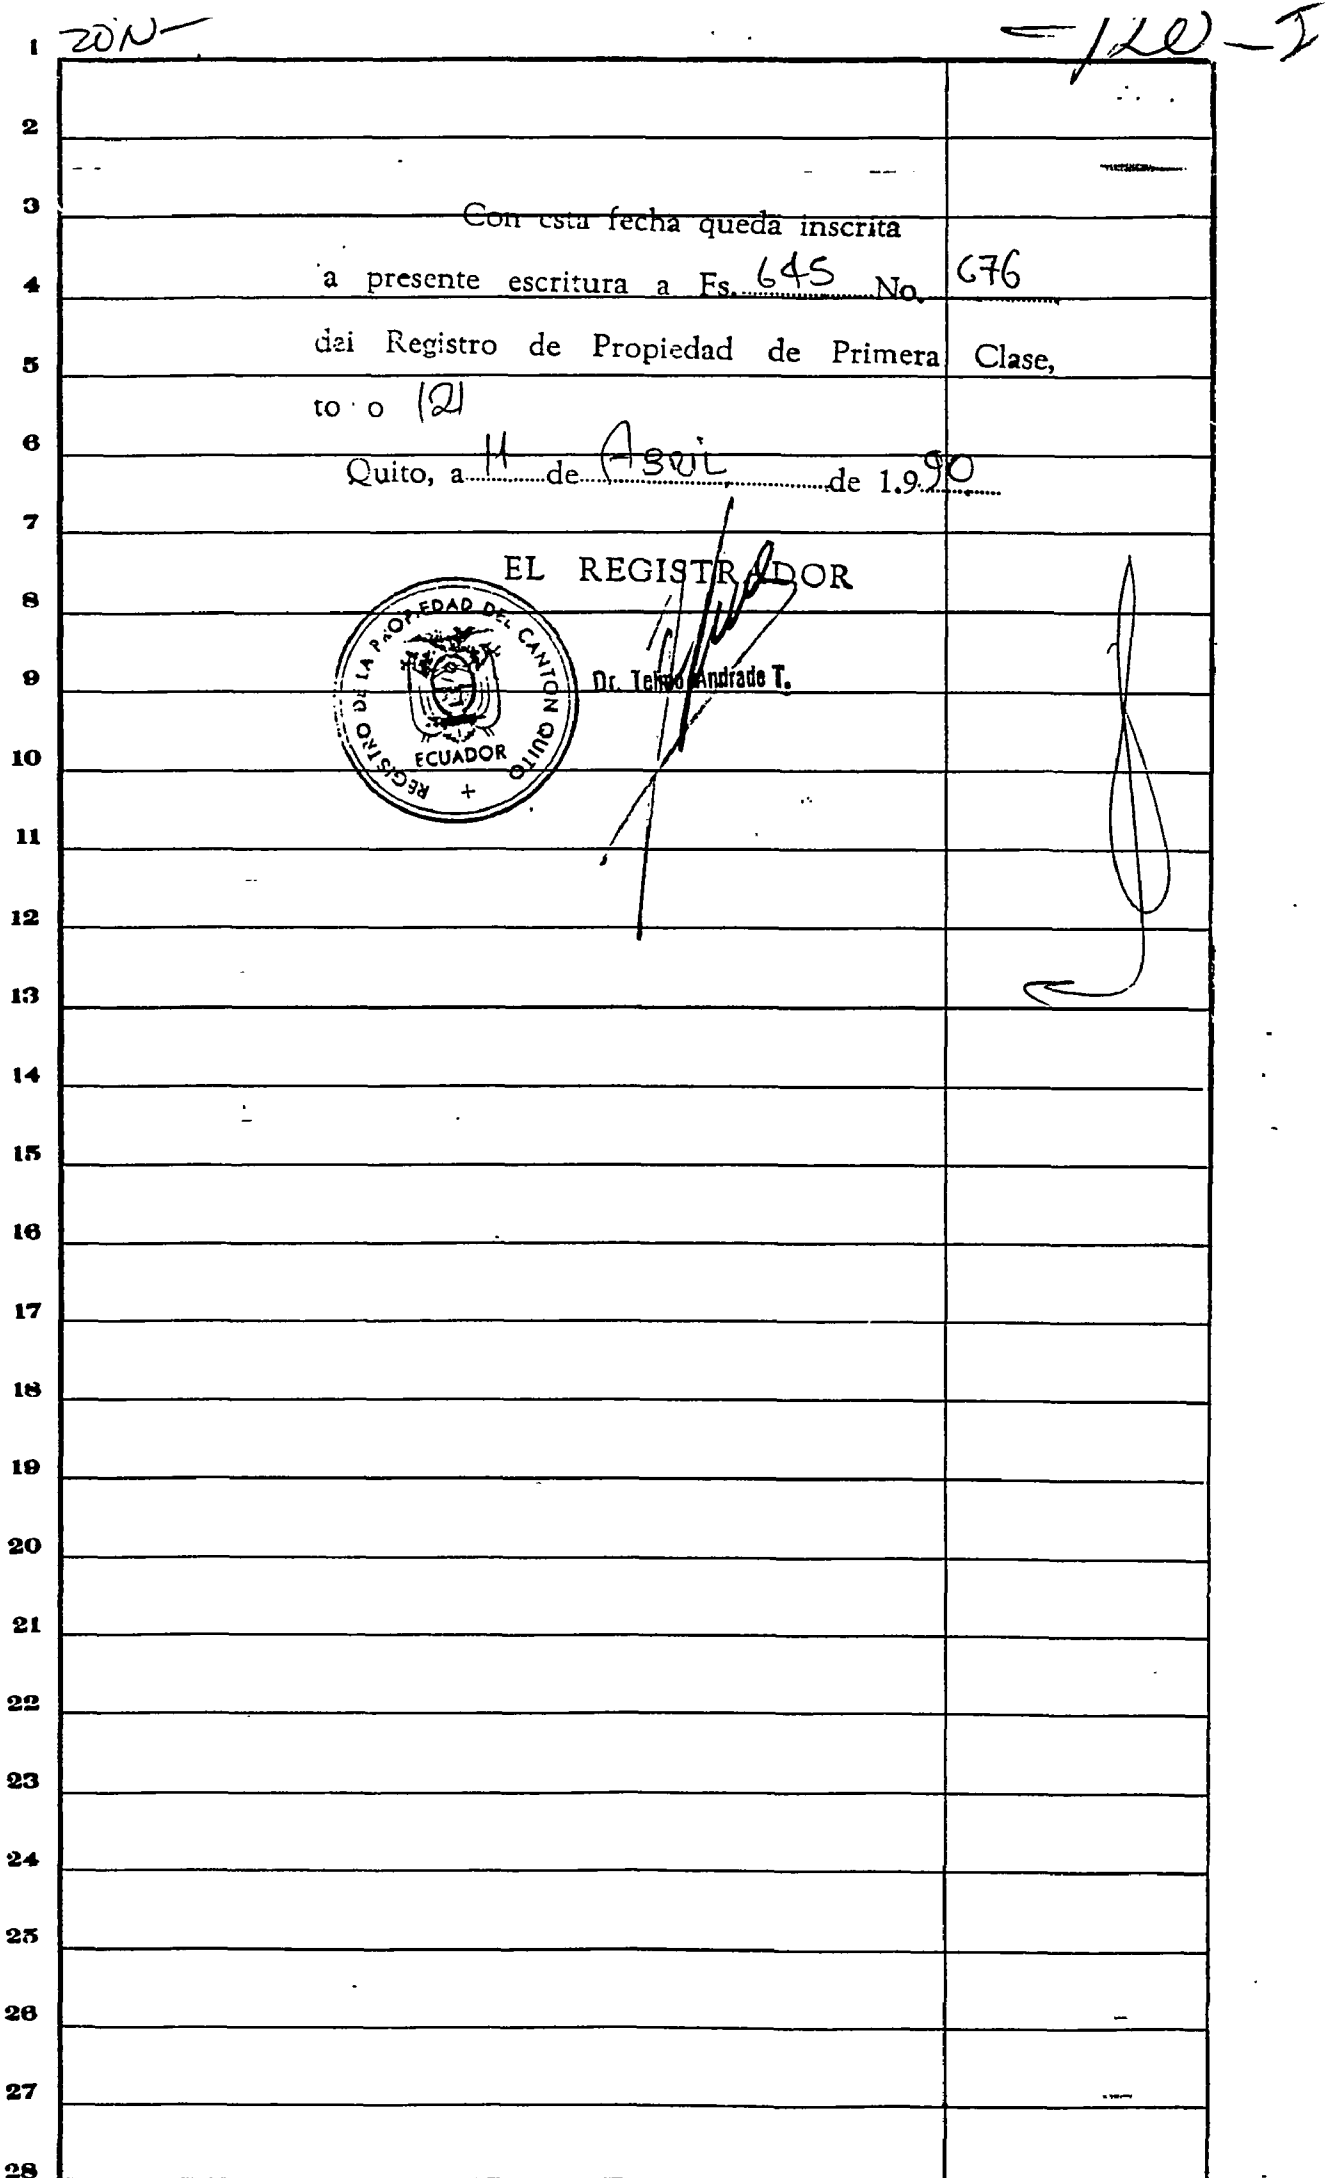 1 ZON-
2
3 Con esta fecha queda inscrita
4 a presente escritura a Fs. 645 No. 676
del Registro de Propiedad de Primera Clase,
5
to o 121
6
Quito, a 11 de Abril de 1.990
7
EL REGISTRADOR
8
REGISTRO DE LA PROPIEDAD DEL CANTON QUITO
ECUADOR
9 Dr. Telmo Andrade T.
10
11
12
13
14
15
16
17
18
19
20
21
22
23
24
25
26
27
28